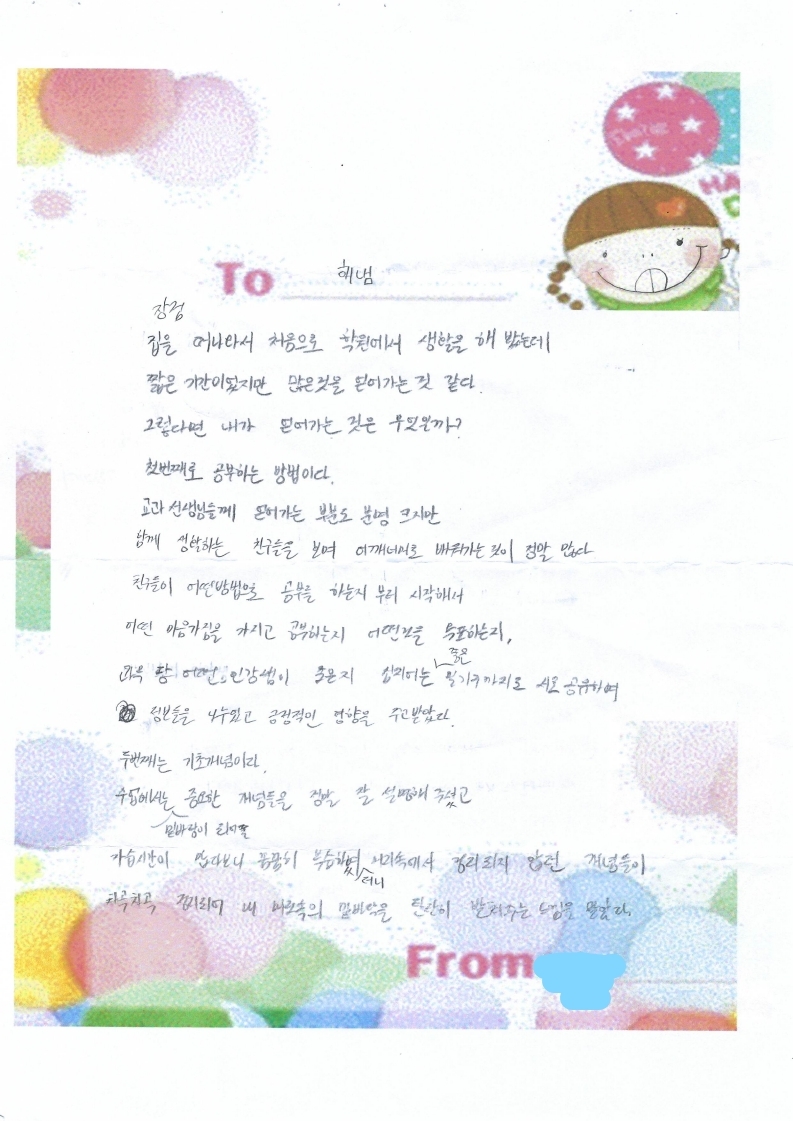 HA
D
To 해냄
장점
집을 떠나와서 처음으로 학원에서 생활을 해 봤는데
짧은 기간이였지만 많은것을 얻어가는 것 같다.
그렇다면 내가 얻어가는 것은 무엇일까?
첫번째로 공부하는 방법이다.
교과 선생님들께 얻어가는 부분도 분명 크지만
함께 생활하는 친구들을 보며 어깨너머로 배워가는 것이 정말 많다
친구들이 어떤방법으로 공부를 하는지 부터 시작해서
어떤 마음가짐을 가지고 공부하는지 어떤것을 목표하는지,
과목 당 어떤 인강쌤이 좋은지 심지어는 좋은 필기구까지도 서로 공유하며
정보들을 나누었고 긍정적인 영향을 주고받았다.
두번째는 기초개념이다.
수업에서는 밑바탕이 되어줄 중요한 개념들을 정말 잘 설명해 주셨고
자습시간이 많다보니 꼼꼼히 복습하였더니 머리속에서 정리되지 않던 개념들이
차곡차곡 정리되며 내 머리속의 밑바닥을 탄탄히 받쳐주는 느낌을 받았다.
From